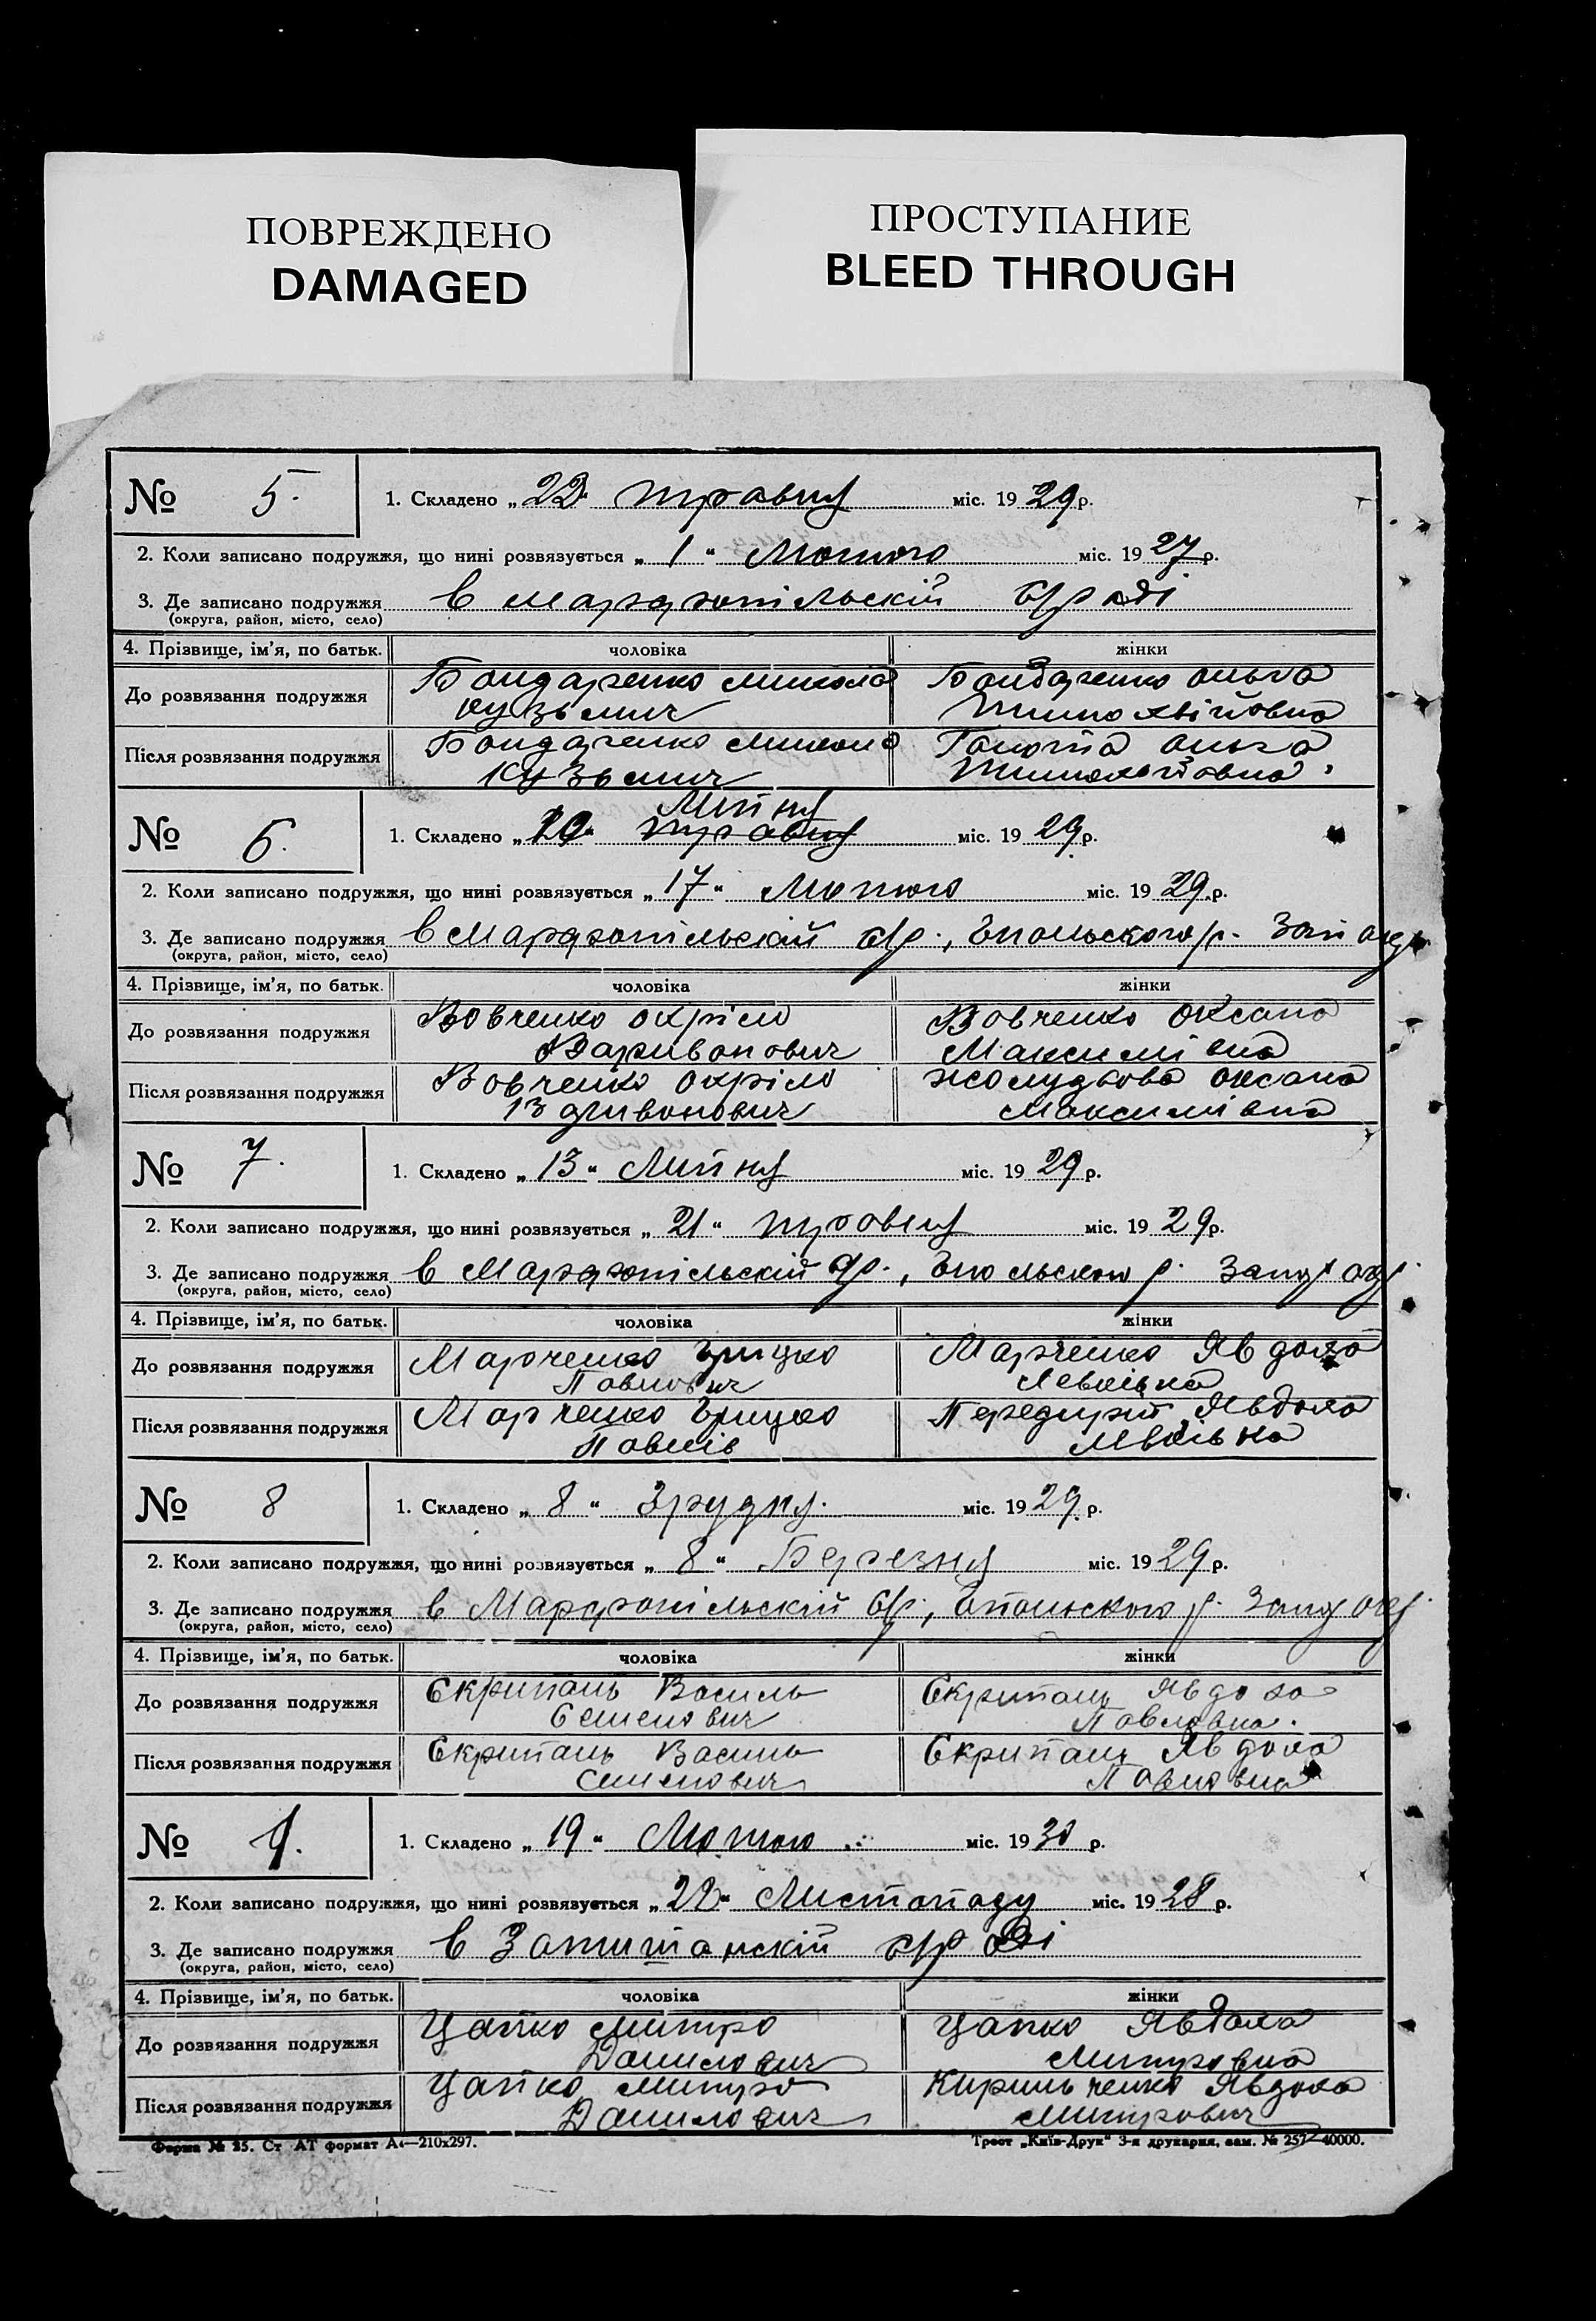 ПОВРЕЖДЕНО
DAMAGED
ПРОСТУПАНИЕ
BLEED THROUGH
№ 5.
1. Складено „22“ травня міс. 1929 р.
2. Коли записано подружжя, що нині розвязується „1“ Лютого міс. 1927 р.
3. Де записано подружжя в
(округа, район, місто, село)
4. Прізвище, ім’я, по батьк. чоловіка жінки
До розвязання подружжя Бондаренко Микола Бондаренко Ольга
Кузьмич
Після розвязання подружжя Бондаренко Микола Ольга
Кузьмич
№ 6.
Липня
1. Складено травня міс. 1929 р.
2. Коли записано подружжя, що нині розвязується „17“ Лютого міс. 1929 р.
3. Де записано подружжя в
(округа, район, місто, село)
4. Прізвище, ім’я, по батьк. чоловіка жінки
До розвязання подружжя Вовченко Охрім Вовченко Оксана
Максимівна
Після розвязання подружжя Вовченко Охрім Жолудкова Оксана
Максимівна
№ 7.
1. Складено „13“ Липня міс. 1929 р.
2. Коли записано подружжя, що нині розвязується „21“ травня міс. 1929 р.
3. Де записано подружжя в
(округа, район, місто, село)
4. Прізвище, ім’я, по батьк. чоловіка жінки
До розвязання подружжя Марченко Грицко Марченко Явдоха
Павлович
Після розвязання подружжя Марченко Грицко Явдоха
Павлів
№ 8
1. Складено „8“ Грудня. міс. 1929 р.
2. Коли записано подружжя, що нині розвязується „8“ Березня міс. 1929 р.
3. Де записано подружжя в
(округа, район, місто, село)
4. Прізвище, ім’я, по батьк. чоловіка жінки
До розвязання подружжя Скрипаль Василь Скрипаль Явдоха
Семенович Павловна.
Після розвязання подружжя Скрипаль Василь Скрипаль Явдоха
Семенович Павловна
№ 9.
1. Складено „19“ Лютого міс. 1930 р.
2. Коли записано подружжя, що нині розвязується „22“ Листопаду міс. 1928 р.
3. Де записано подружжя в
(округа, район, місто, село)
4. Прізвище, ім’я, по батьк. чоловіка жінки
До розвязання подружжя Цапко Митро Цапко Явдоха
Данилович Митровна
Після розвязання подружжя Цапко Митро Кирильченко Явдоха
Данилович Митрович
Форма № 25. Ст АТ формат А4—210x297. Трест „Київ-Друк“ 3-я друкарня, зам. № 257—40000.